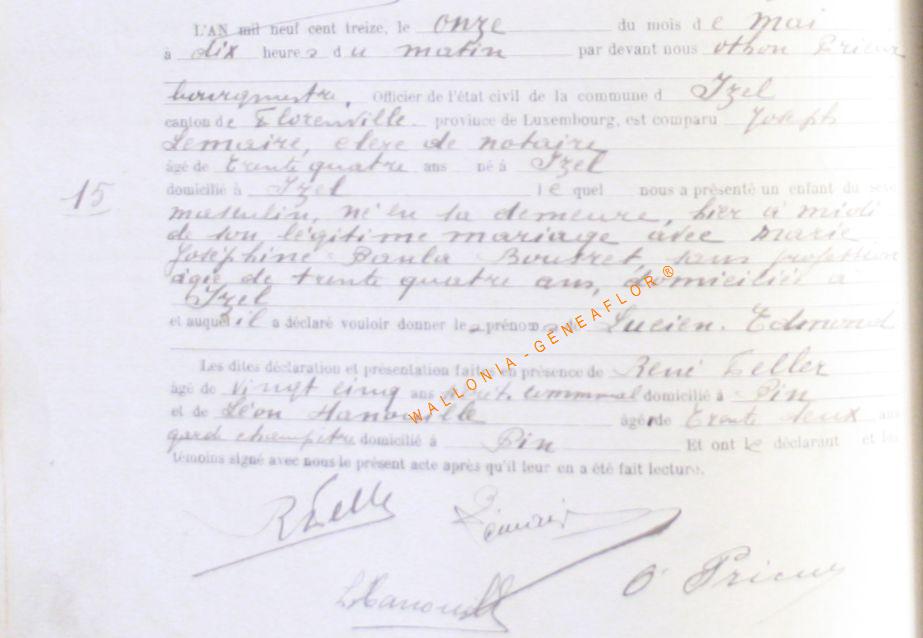 L'AN mil neuf cent treize, le onze du mois de Mai
à dix heures du matin par devant nous othon Prieur
bourgmestre, Officier de l'état civil de la commune d Izel
canton de Florenville province de Luxembourg, est comparu Joseph
Lemaire, clerc de notaire
âgé de trente quatre ans né à Izel
15
domicilié à Izel lequel nous a présenté un enfant du sexe
masculin, né en sa demeure, hier à midi
de son légitime mariage avec Marie
Joséphine Paula sans profession
âgée de trente quatre ans, domiciliée à
Izel
et auquel il a déclaré vouloir donner les prénoms de Lucien. Edmond
Les dites déclaration et présentation faites en présence de René Feller
âgé de vingt cinq ans communal domicilié à Pin
et de Léon Hanouille âgé de trente deux ans
gard champêtre domicilié à Pin Et ont le déclarant et les
témoins signé avec nous le présent acte après qu'il leur en a été fait lecture.
WALLONIA-GENEAFLOR®
R Felle
Lemaire
L Hanouill
O Prieur